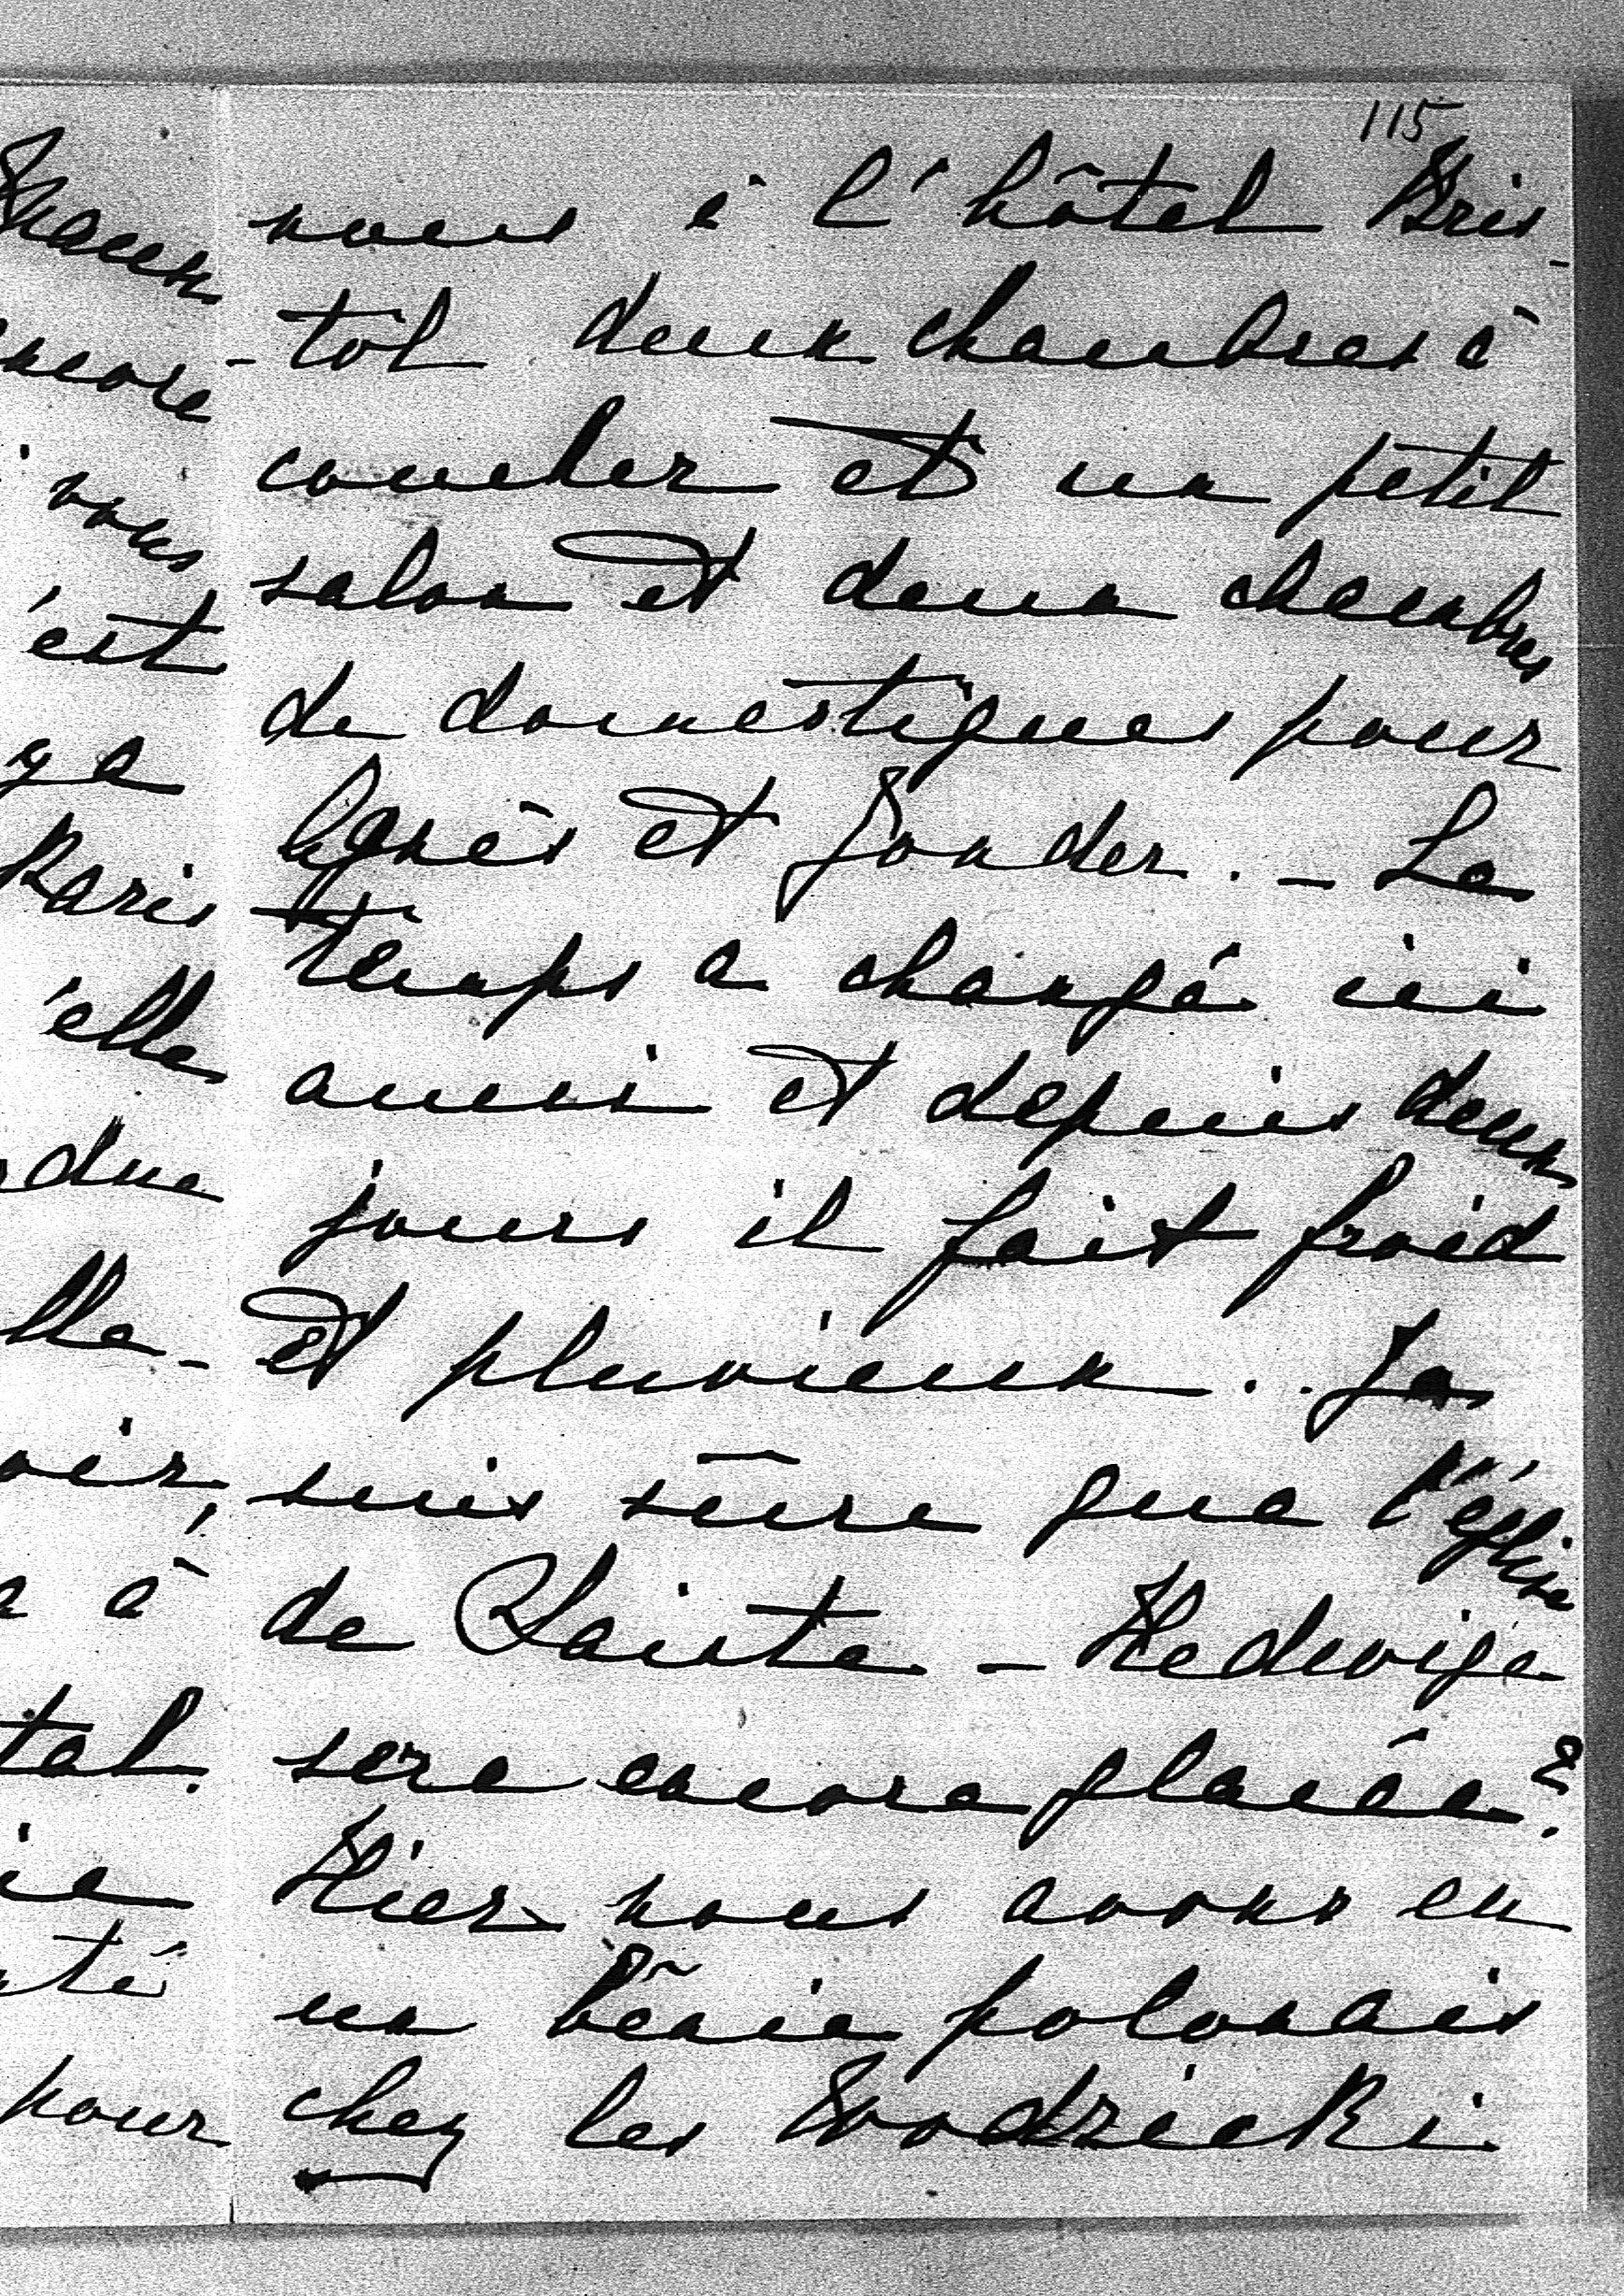 115
nous à l'hôtel Bris-
-tol deux chambres à
coucher et un petit
salon et deux chambres
de domestiques pour
Agnès et Jonder. - Le
temps a changé ici
aussi et depuis deux
jours il fait froid
et pluvieux. Je
suis sûre que l'église
de Sainte-Hedwige
sera encore glacée?
Hier nous avons eu
un polonais
chez les Wodzicki
encore
vous
'est
y a
Paris
'elle
due
lle-
oir,
à
tal.
ie
té
pour